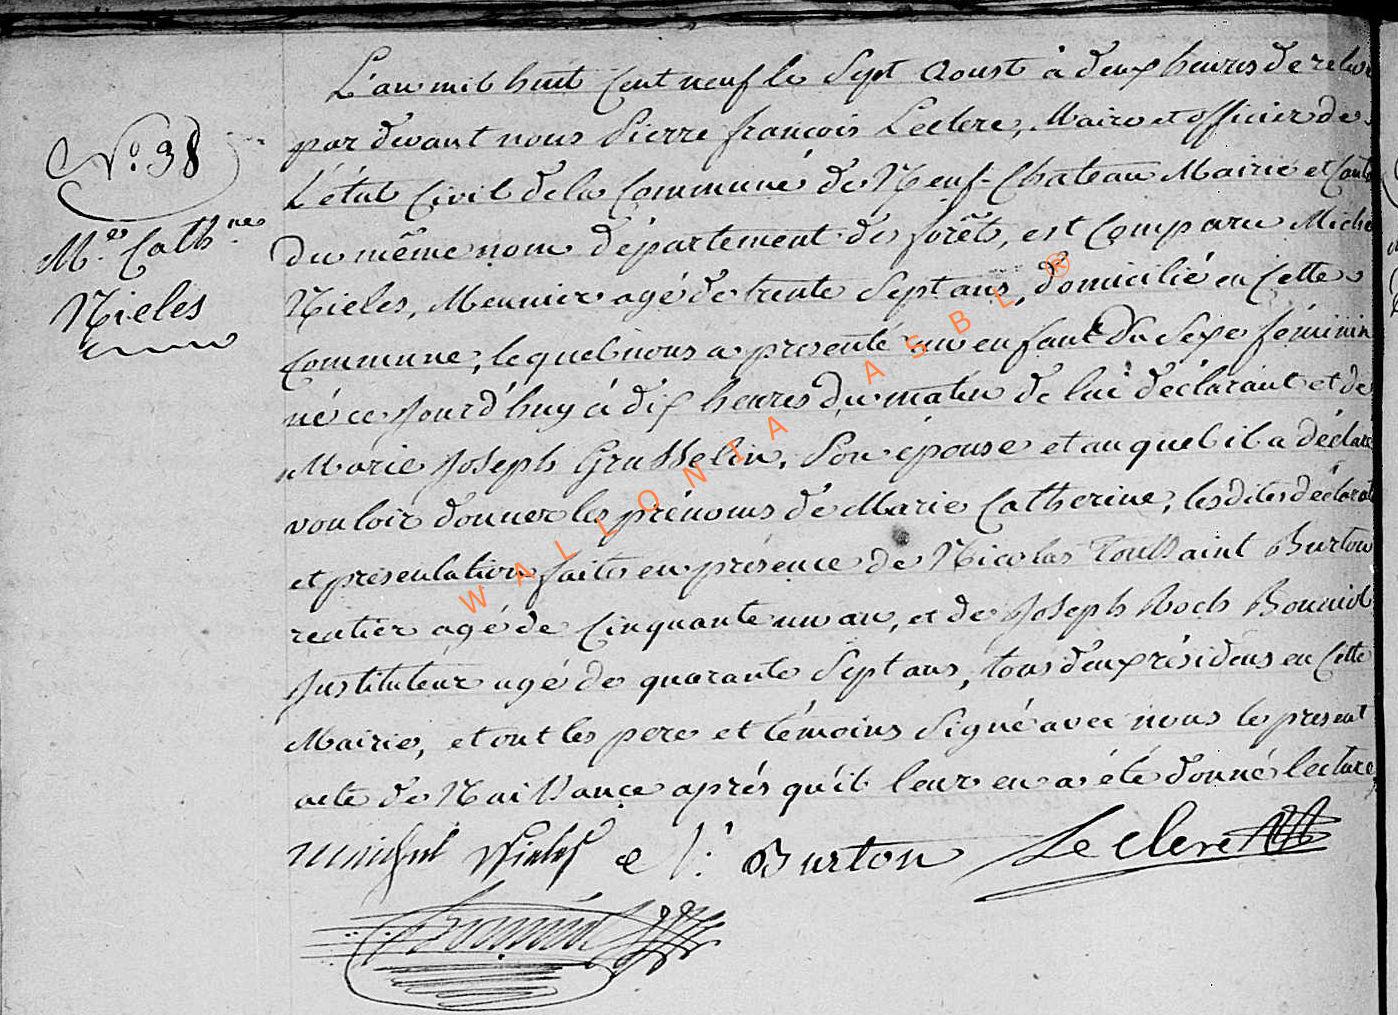 N.o 38
M.ie Cath.ne
Nieles
L'an mil huit Cent neuf le Sept Aoust à deux heures de relevé
par devant nous Pierre françois Leclere, Maire et officier de
L'état Civil de la Commune de Neuf-Chateau Mairie et Canton
du même nom département des forêts, est Comparu Michel
Nieles, Meunier agé de trente Sept ans, domicilié en Cette
Commune, lequel nous a presenté un enfant du Sexe féminin
né ce jourd'huy à dix heures du matin de lui déclarant et de
Marie Joseph Grusselin, Son épouse et auquel il a déclaré
vouloir donner les prénoms de Marie Catherine, les dites déclarat
et présentation faites en présence de Nicolas Toussaint Burton
rentier agé de Cinquante un an, et de Joseph Roch
Instituteur agé de quarante Sept ans, tous deux résidens en Cette
Mairie, et ont les pere et témoins Signé avec nous le present
acte de Naissance après qu'il leur en a été donné lecture,
Michel Nieles Burton Leclere
WALLONIA ASBL ®